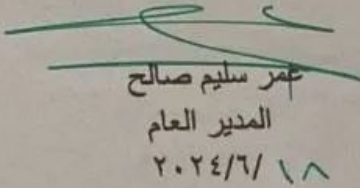 عمر سليم صالح
المدير العام
٢٠٢٤/٦/١٨